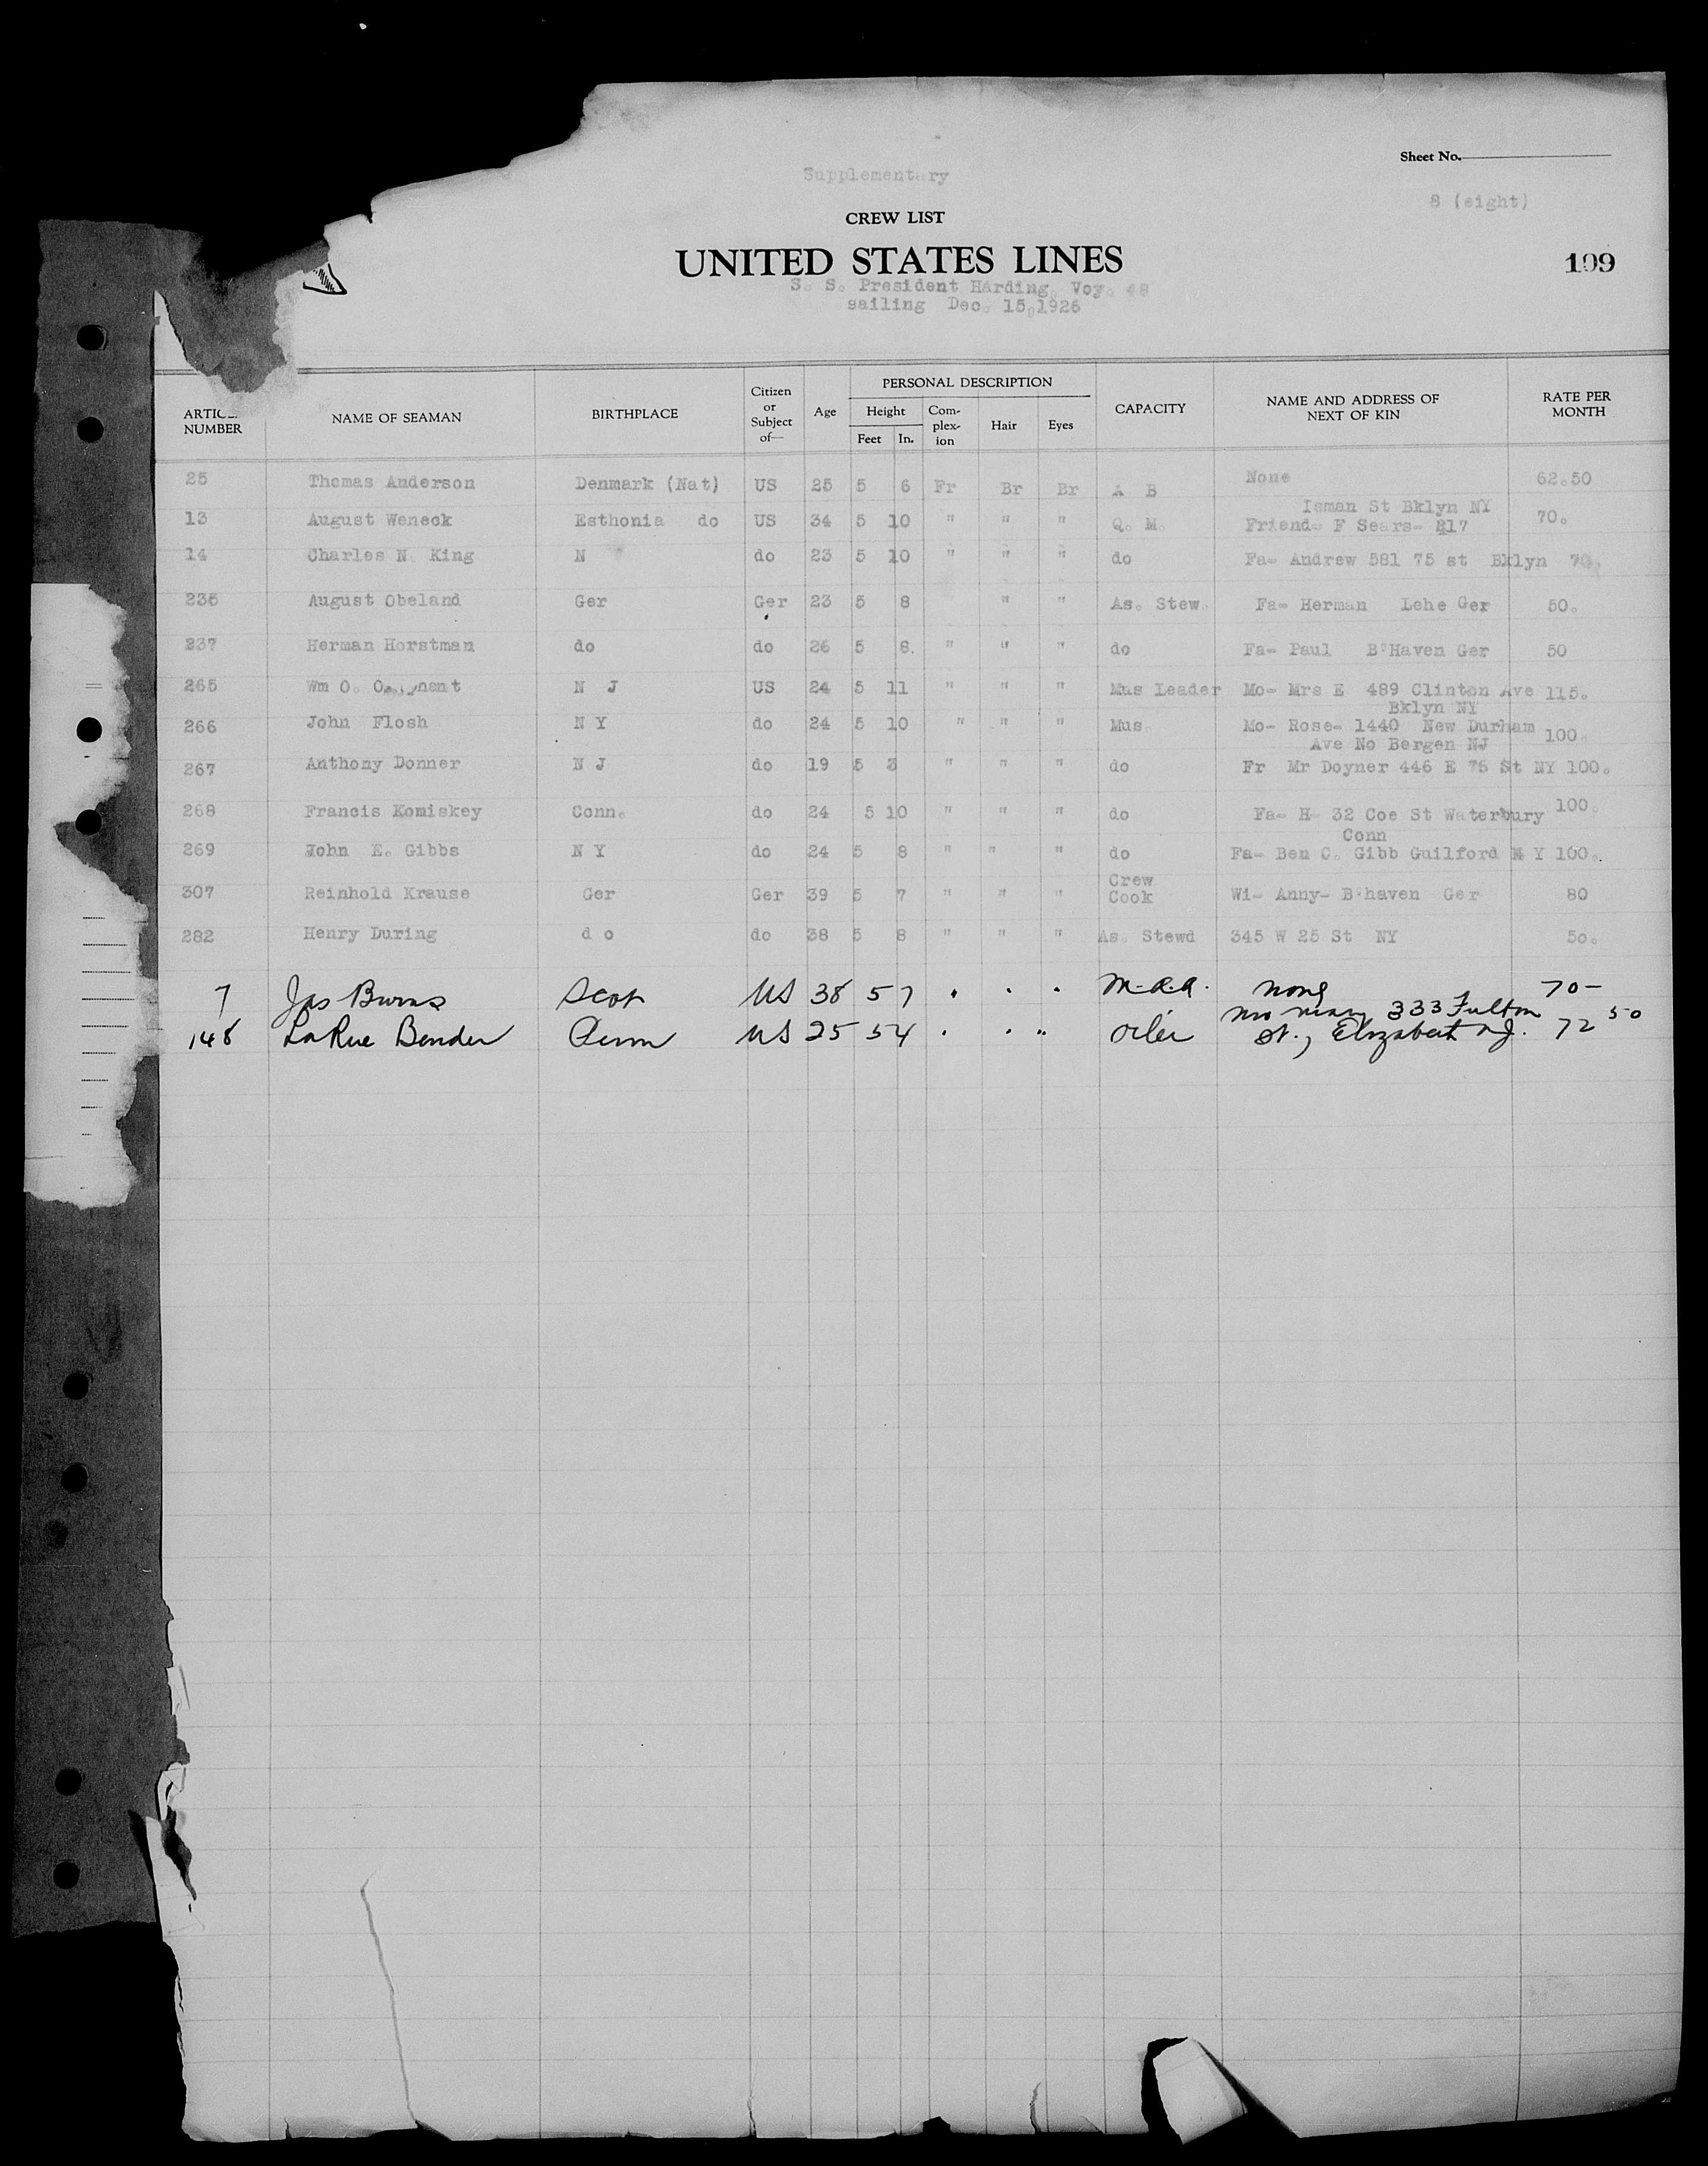 Sheet No.
Supplementary
8 (eight)
CREW LIST
UNITED STATES LINES
109
S. S. President Harding, Voy. 48
sailing Dec. 15, 1926
ARTICLE NUMBER NAME OF SEAMAN BIRTHPLACE Citizen or Subject of— Age PERSONAL DESCRIPTION Height Feet In. Com-plex-ion Hair Eyes CAPACITY NAME AND ADDRESS OF NEXT OF KIN RATE PER MONTH
25 Thomas Anderson Denmark (Nat) US 25 5 6 Fr Br Br A B None 62.50
Isman St Bklyn NY
13 August Weneck Esthonia do US 34 5 10 " " " Q. M. Friend- F Sears- 217 70.
14 Charles N. King N do 23 5 10 " " " do Fa- Andrew 581 75 st Bklyn 70.
236 August Obeland Ger Ger 23 5 8 " " As. Stew. Fa- Herman Lehe Ger 50.
237 Herman Horstman do do 26 5 8. " " " do Fa- Paul B'Haven Ger 50
265 Wm O. N J US 24 5 11 " " " Mus Leader Mo- Mrs E 489 Clinton Ave 115.
Bklyn NY
266 John Flosh N Y do 24 5 10 " " " Mus. Mo- Rose- 1440 New Durham 100.
Ave No Bergen NJ
267 Anthony Donner N J do 19 5 3 " " " do Fr Mr Doyner 446 E 75 St NY 100.
268 Francis Komiskey Conn. do 24 5 10 " " " do Fa- H- 32 Coe St Waterbury 100.
Conn
269 John E. Gibbs N Y do 24 5 8 " " " do Fa- Ben C. Gibb Guilford N Y 100.
307 Reinhold Krause Ger Ger 39 5 7 " " " Crew Cook Wi- Anny- B'haven Ger 80
282 Henry During d o do 38 5 8 " " " As. Stewd 345 W 25 St NY 50.
7 Jas Burns Scot US 38 5 7 " " " M.a.a. None 70-
148 LaRue Bender Penn US 25 5 4 " " " Oiler Mo Mary 333 Fulton St., Elizabeth NJ. 72 50